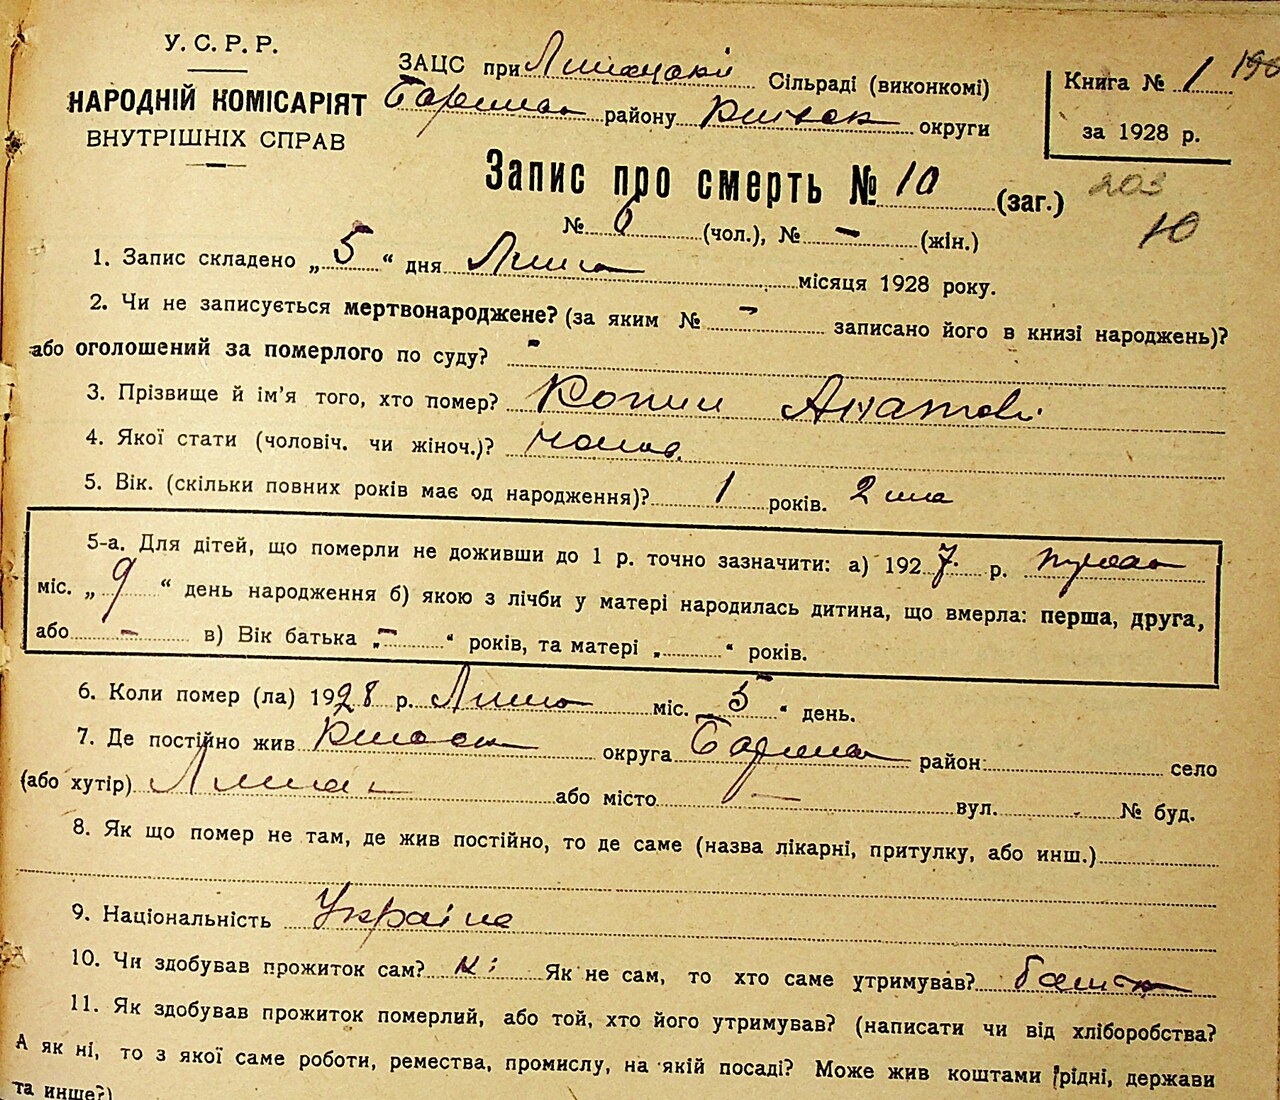 У. С. Р. Р.
НАРОДНІЙ КОМІСАРІЯТ
ВНУТРІШНІХ СПРАВ
ЗАЦС при Сільраді (виконкомі)
району округи
Книга № 1
за 1928 р.
Запис про смерть № 10 (заг.)
203
10
№ 6 (чол.), № - (жін.)
1. Запис складено „ 5 “ дня місяця 1928 року.
2. Чи не записується мертвонароджене? (за яким № - записано його в книзі народжень)?
або оголошений за померлого по суду? -
3. Прізвище й ім’я того, хто помер?
4. Якої стати (чоловіч. чи жіноч.)? чолов.
5. Вік. (скільки повних років має од народження)? 1 років. 2
5-а. Для дітей, що померли не доживши до 1 р. точно зазначити: а) 1927 р.
міс. „ 9 “ день народження б) якою з лічби у матері народилась дитина, що вмерла: перша, друга,
або - в) Вік батька „ - “ років, та матері „ “ років.
6. Коли помер (ла) 1928 р. міс. 5 “ день.
7. Де постійно жив округа район село
(або хутір) або місто - вул. № буд.
8. Як що помер не там, де жив постійно, то де саме (назва лікарні, притулку, або инш.)
9. Національність
10. Чи здобував прожиток сам? ні Як не сам, то хто саме утримував?
11. Як здобував прожиток померлий, або той, хто його утримував? (написати чи від хліборобства?
А як ні, то з якої саме роботи, ремества, промислу, на якій посаді? Може жив коштами рідні, держави
та инше?)